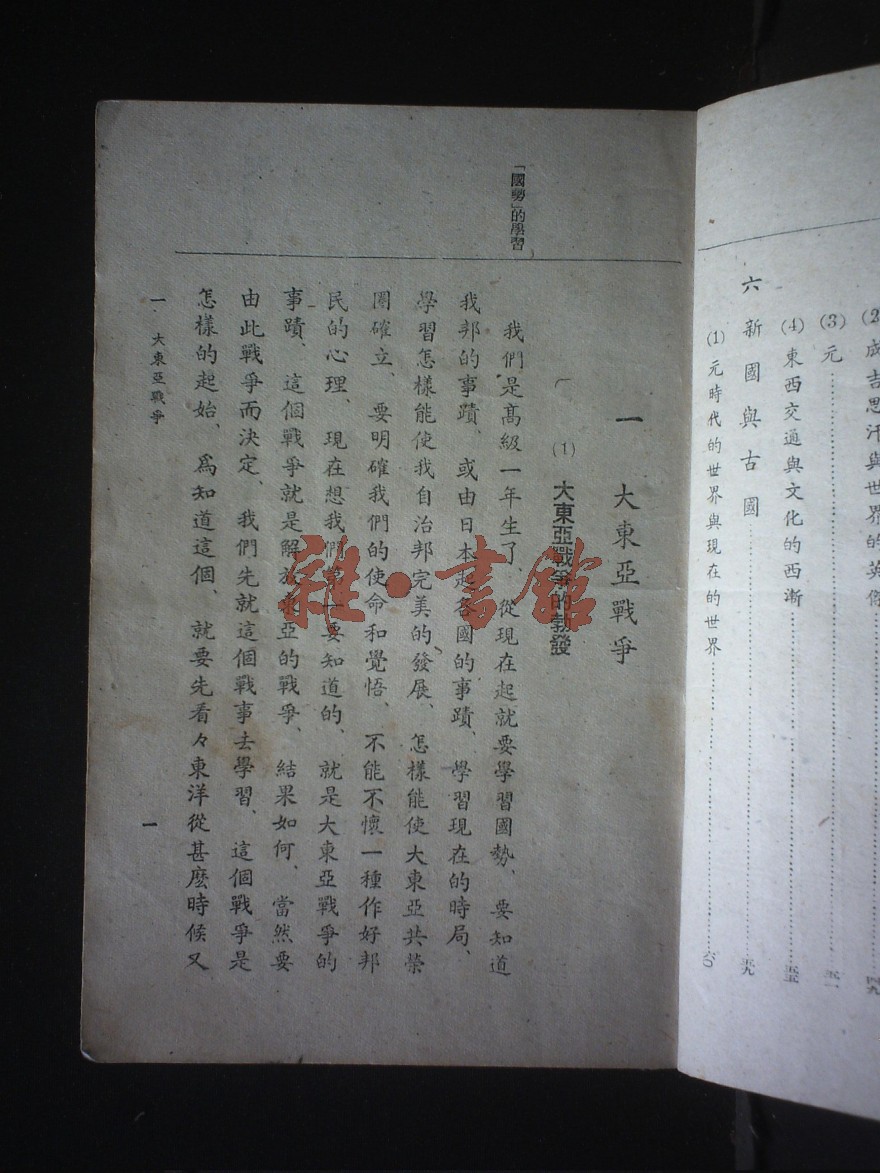 (2)成吉思汗與世界的英傑……四九
(3)元……五一
(4)東西交通與文化的西漸……五五
六 新國與古國……五九
(1)元時代的世界與現在的世界……六〇
「國勢」的學習
一 大東亞戰爭
(1) 大東亞戰爭的勃發
我們是高級一年生了、從現在起就要學習國勢、要知道
我邦的事蹟、或由日本起各國的事蹟、學習現在的時局、
學習怎樣能使我自治邦完美的發展、怎樣能使大東亞共榮
圈確立、要明確我們的使命和覺悟、不能不懷一種作好邦
民的心理、現在想我們第一要知道的、就是大東亞戰爭的
事蹟、這個戰爭就是解放東亞的戰爭、結果如何、當然要
由此戰爭而決定、我們先就這個戰事去學習、這個戰爭是
怎樣的起始、爲知道這個、就要先看々東洋從甚麼時候又
一 大東亞戰爭
一
雜·書館